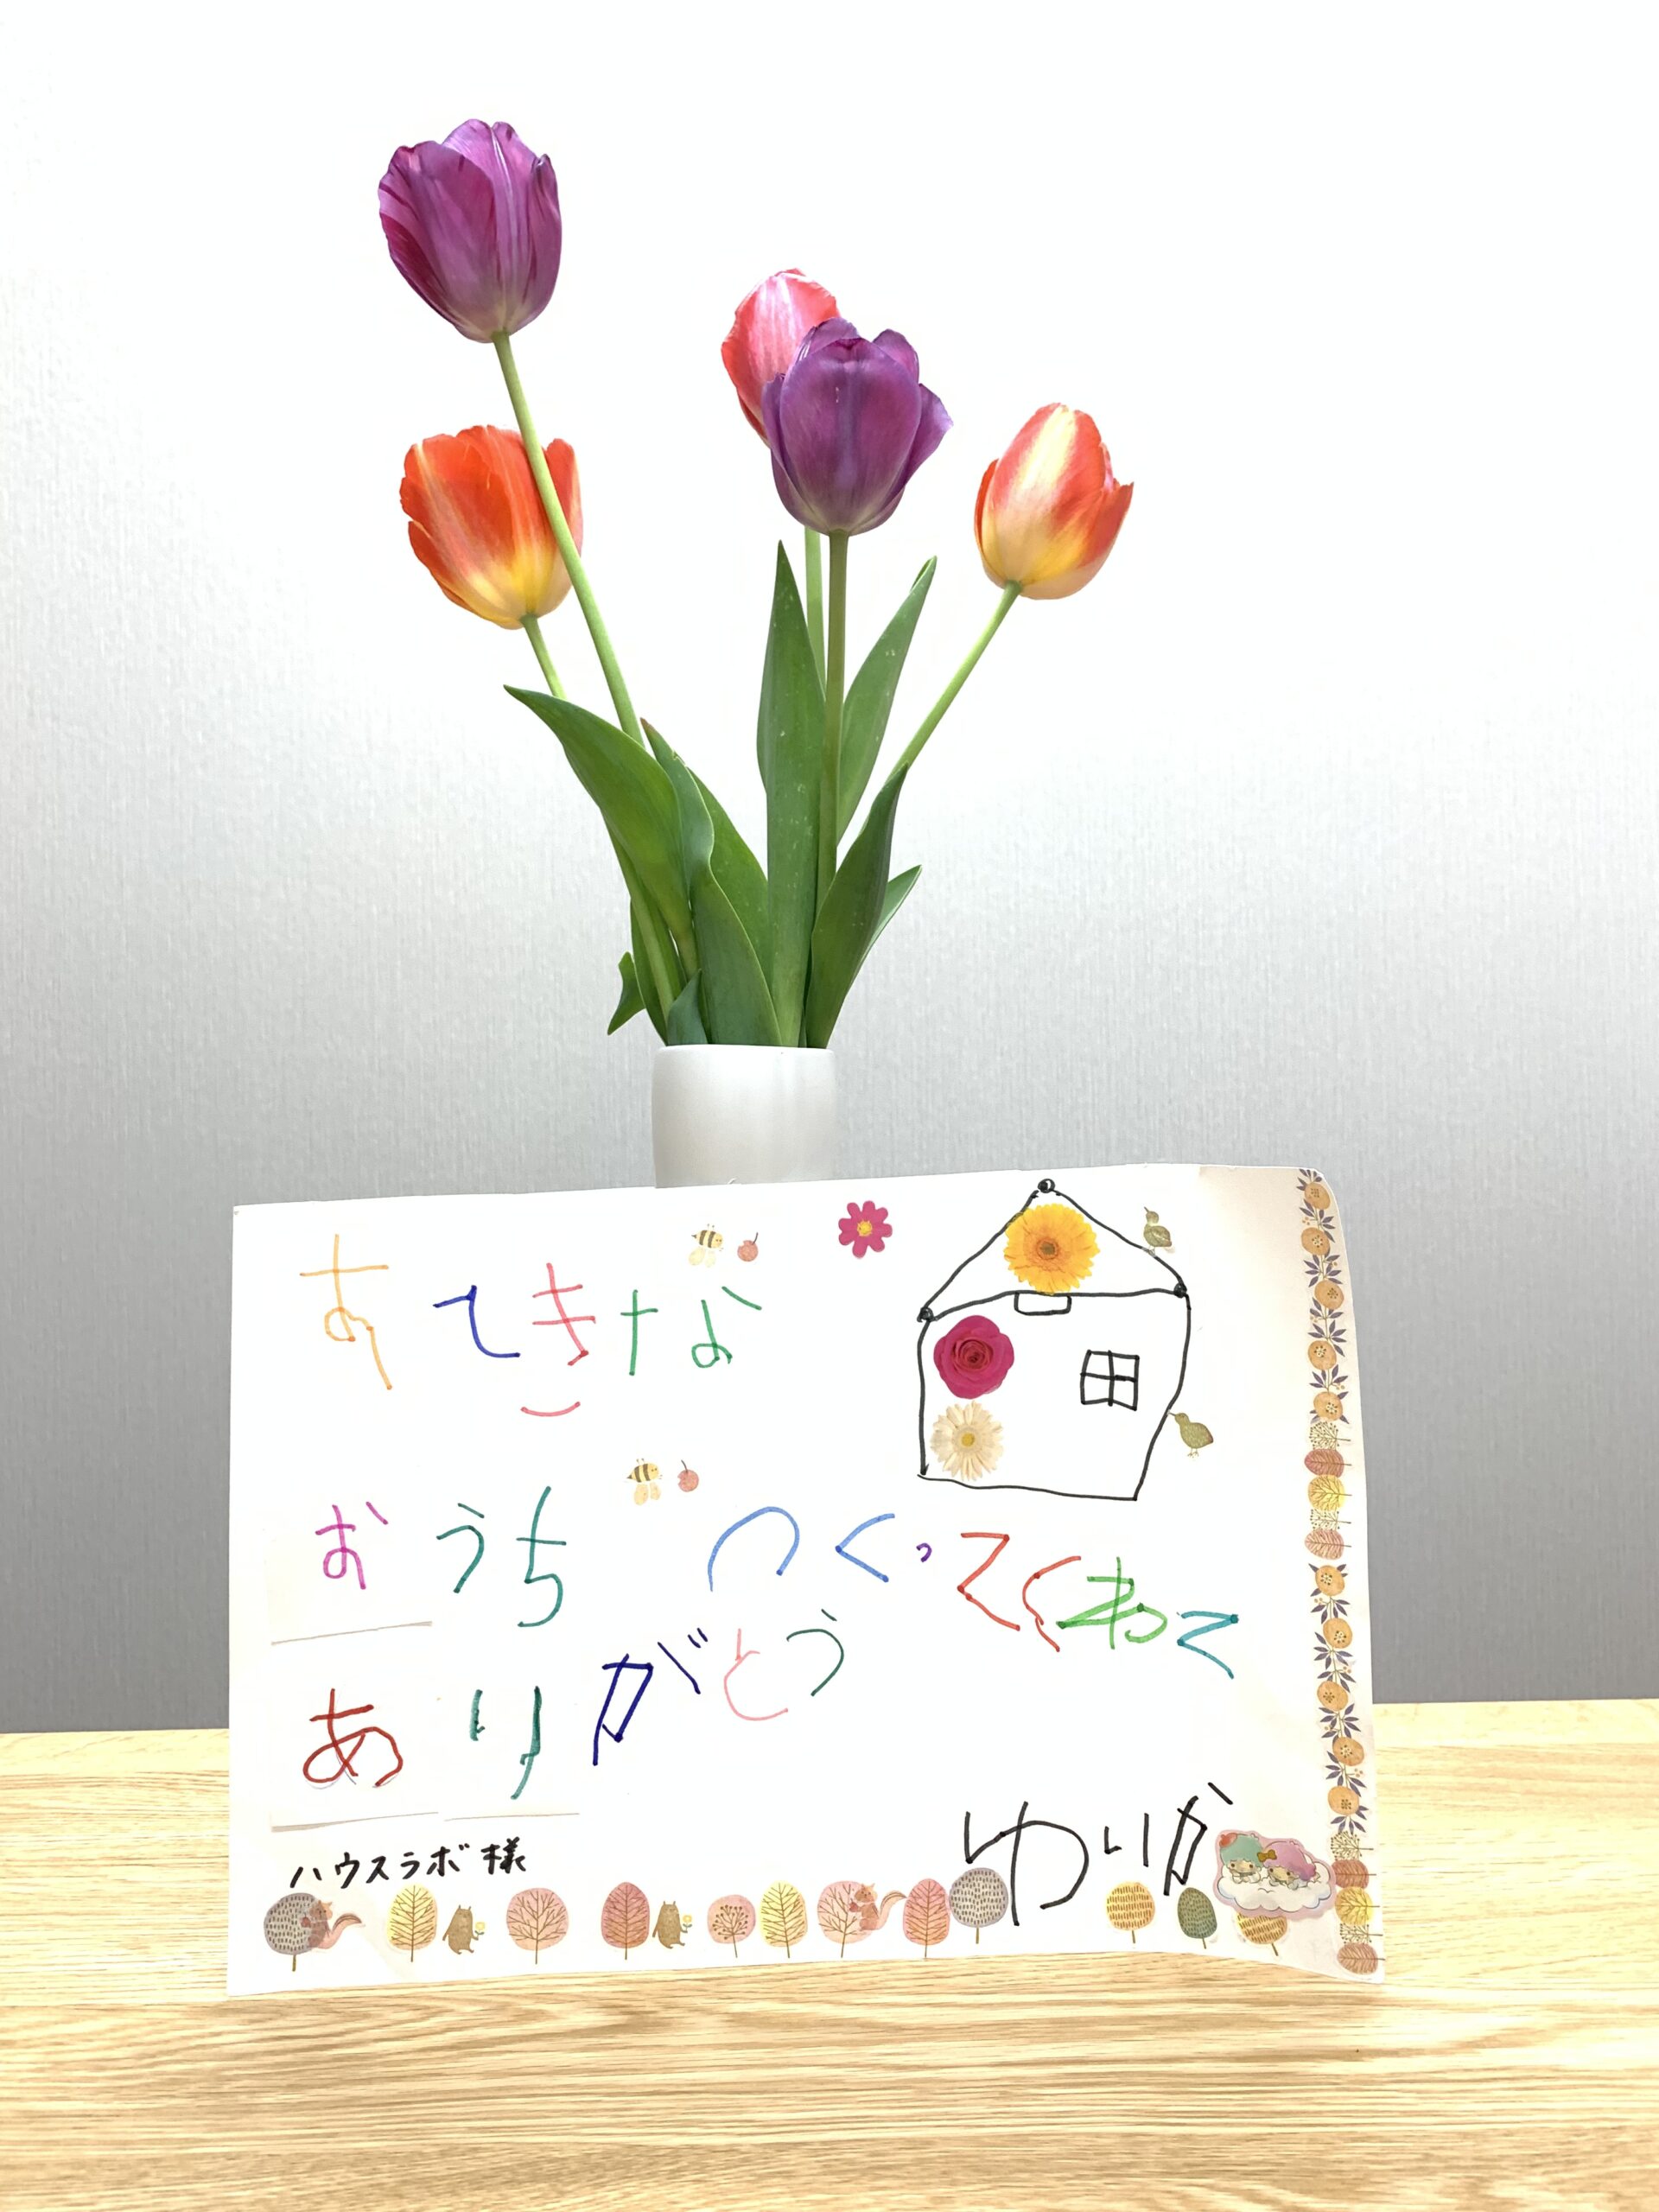 すてきな
おうち つくってくれて
ありがとう
ゆりか
ハウスラボ様